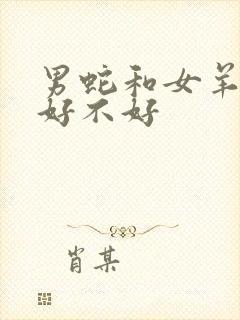 男蛇和女羊
好不好
肖某